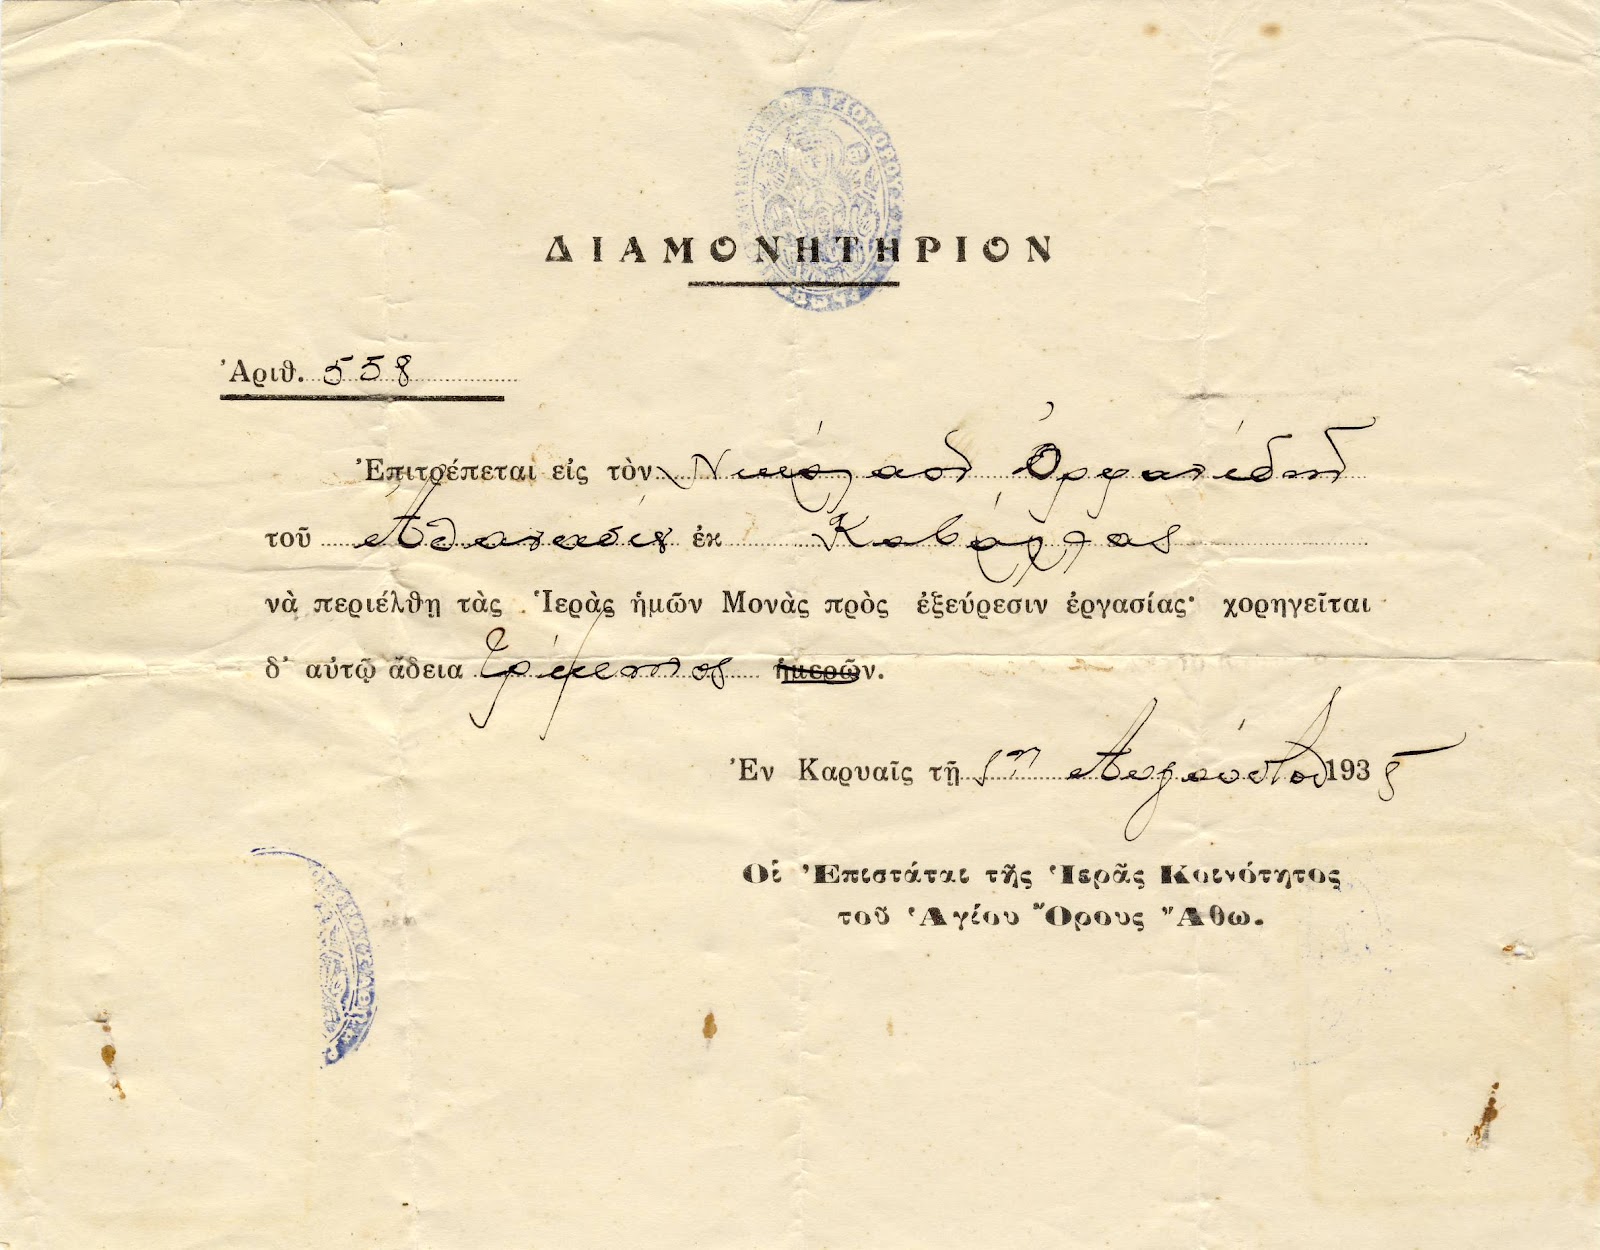 ΔΙΑΜΟΝΗΤΗΡΙΟΝ
Ἀριθ. 558
Ἐπιτρέπεται εἰς τὸν Νικόλαον Ὀρφανίδην
τοῦ Ἀθανασίου ἐκ Καβάλλας
νὰ περιέλθῃ τὰς Ἱερὰς ἡμῶν Μονὰς πρὸς ἐξεύρεσιν ἐργασίας· χορηγεῖται
δ' αὐτῷ ἄδεια τρίμηνος ἡμερῶν.
Ἐν Καρυαῖς τῇ Αὐγούστου 1935
Οἱ Ἐπιστάται τῆς Ἱερᾶς Κοινότητος
τοῦ Ἁγίου Ὄρους Ἄθω.